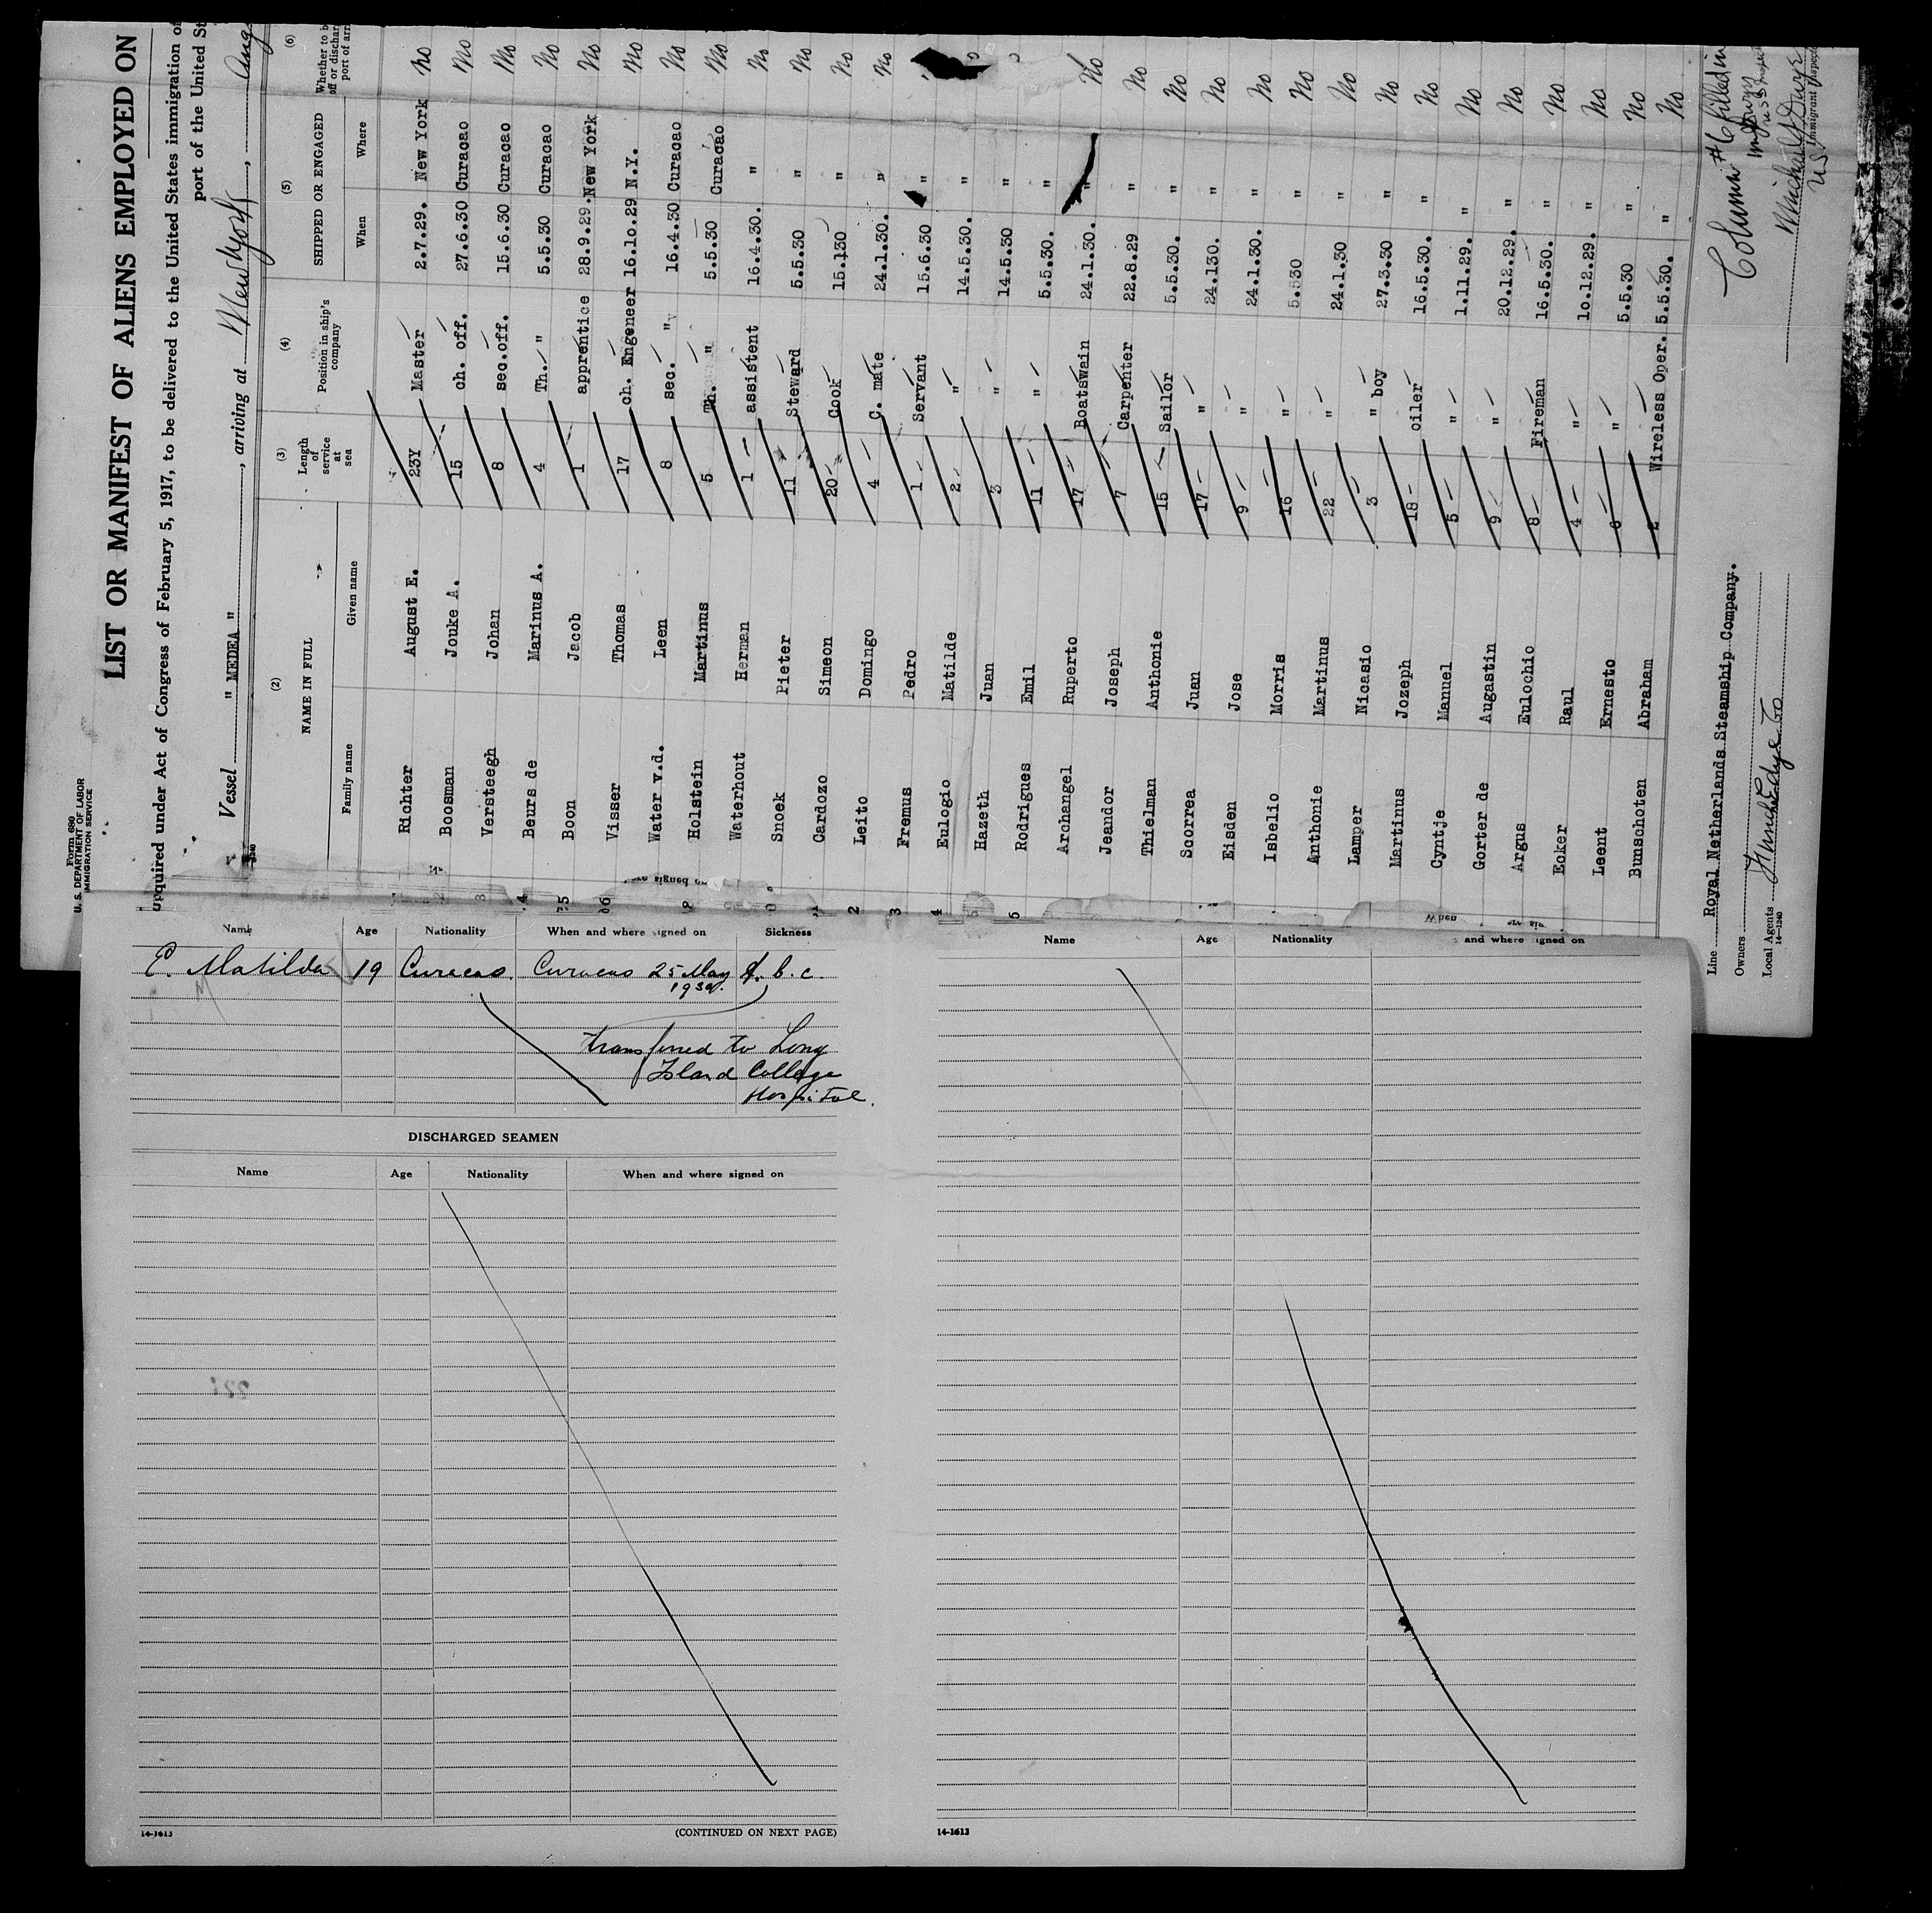 Form 680
U. S. DEPARTMENT OF LABOR
IMMIGRATION SERVICE
LIST OR MANIFEST OF ALIENS EMPLOYED ON
Required under Act of Congress of February 5, 1917, to be delivered to the United States immigration
port of the United
Vessel " MEDEA ", arriving at New York, Aug
(2) (3) (4) (5) (6)
NAME IN FULL Length of service at sea Position in ship's company SHIPPED OR ENGAGED Whether to
off or dischar
port of arri
Family name Given name When Where
Richter August E. 23Y Master 2.7.29. New York No
Boosman Jouke A. 15 ch. off. 27.6.30 Curacao No
Versteegh Johan 8 sec.off. 15.6.30 Curacao No
Beurs de Marinus A. 4 Th. " 5.5.30 Curacao No
Boon Jacob 1 apprentice 28.9.29. New York No
Visser Thomas 17 ch. Engeneer 16.10.29 N.Y. No
Water v.d. Leen 8 sec. " 16.4.30 Curacao No
Holstein Martinus 5 Th. " 5.5.30 Curacao No
Waterhout Herman 1 assistent 16.4.30. " No
Snoek Pieter 11 Steward 5.5.30 " No
Cardozo Simeon 20 Cook 15.130 " No
Leito Domingo 4 C. mate 24.1.30. " No
Fremus Pedro 1 Servant 15.6.30 "
Eulogio Matilde 2 " 14.5.30. "
Hazeth Juan 3 " 14.5.30 "
Rodrigues Emil 11 " 5.5.30. "
Archangel Ruperto 17 Boatswain 24.1.30. " No
Jeandor Joseph 7 Carpenter 22.8.29 " No
Thielman Anthonie 15 Sailor 5.5.30. " No
Scorrea Juan 17 " 24.130. " No
Eisden Jose 9 " 24.1.30. " No
Isbelio Morris 16 " 5.530 " No
Anthonie Martinus 22 " 24.1.30 " No
Lamper Nicasio 3 " boy 27.3.30 " No
Martinus Jozeph 18 oiler 16.5.30. " No
Cyntje Manuel 5 " 1.11.29. " No
Gorter de Augastin 9 " 20.12.29. " No
Argus Eulochio 8 Fireman 16.5.30. " No
Ecker Raul 4 " 10.12.29. " No
Leent Ernesto 6 " 5.5.30 " No
Bunschoten Abraham 2 Wireless Oper. 5.5.30. " No
Line Royal Netherlands Steamship Company.
Owners
Local Agents
14-1240
Column #6 filled in
Immigrant Inspec
Name Age Nationality When and where signed on Sickness
E. Matilda 19 Curacao. Curacao 25 May
1930.
transferred to Long
Island College
Hospital.
DISCHARGED SEAMEN
Name Age Nationality When and where signed on
14-1613 (CONTINUED ON NEXT PAGE)
Name Age Nationality and where signed on
14-1613